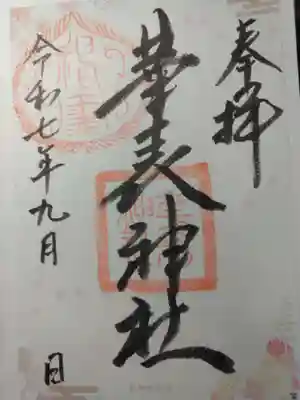 奉拝
華表神社
令和七年九月 日